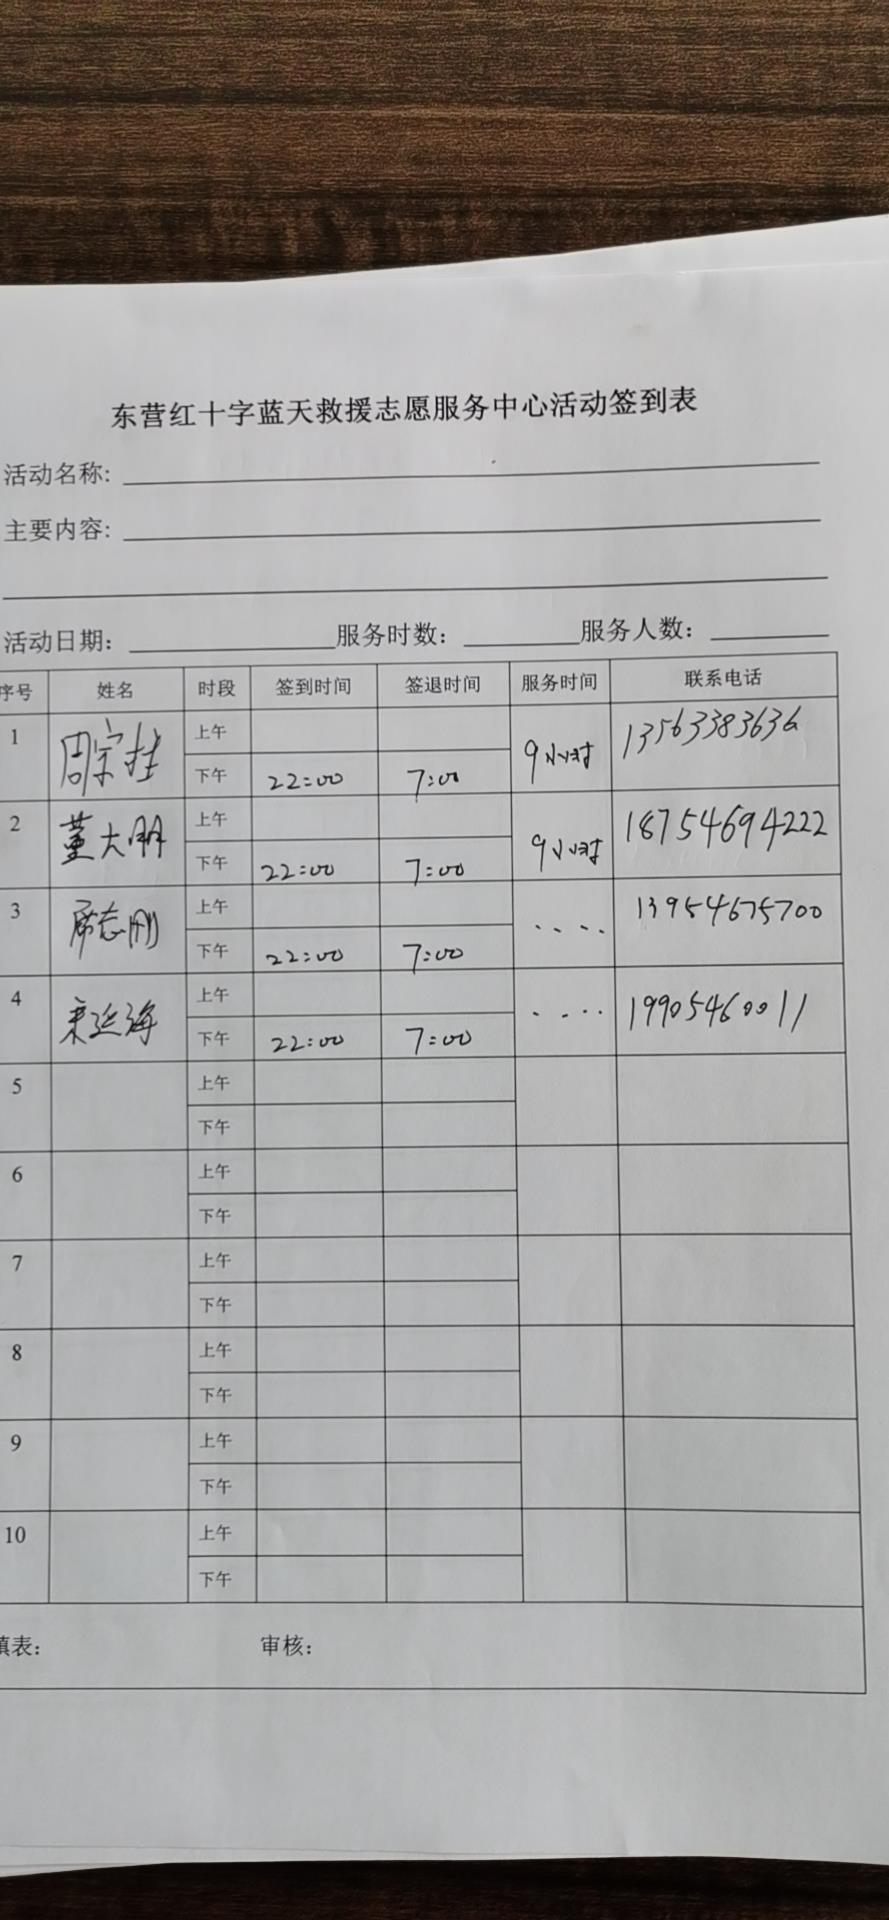 东营红十字蓝天救援志愿服务中心活动签到表
活动名称:
主要内容:
活动日期: 服务时数: 服务人数:
序号 姓名 时段 签到时间 签退时间 服务时间 联系电话
1 周宗柱 上午
下午 22:00 7:00 9小时 13563383636
2 董大朋 上午
下午 22:00 7:00 9小时 18754694222
3 席志刚 上午
下午 22:00 7:00 .... 13954675700
4 延海 上午
下午 22:00 7:00 .... 19905460011
5 上午
下午
6 上午
下午
7 上午
下午
8 上午
下午
9 上午
下午
10 上午
下午
填表: 审核: